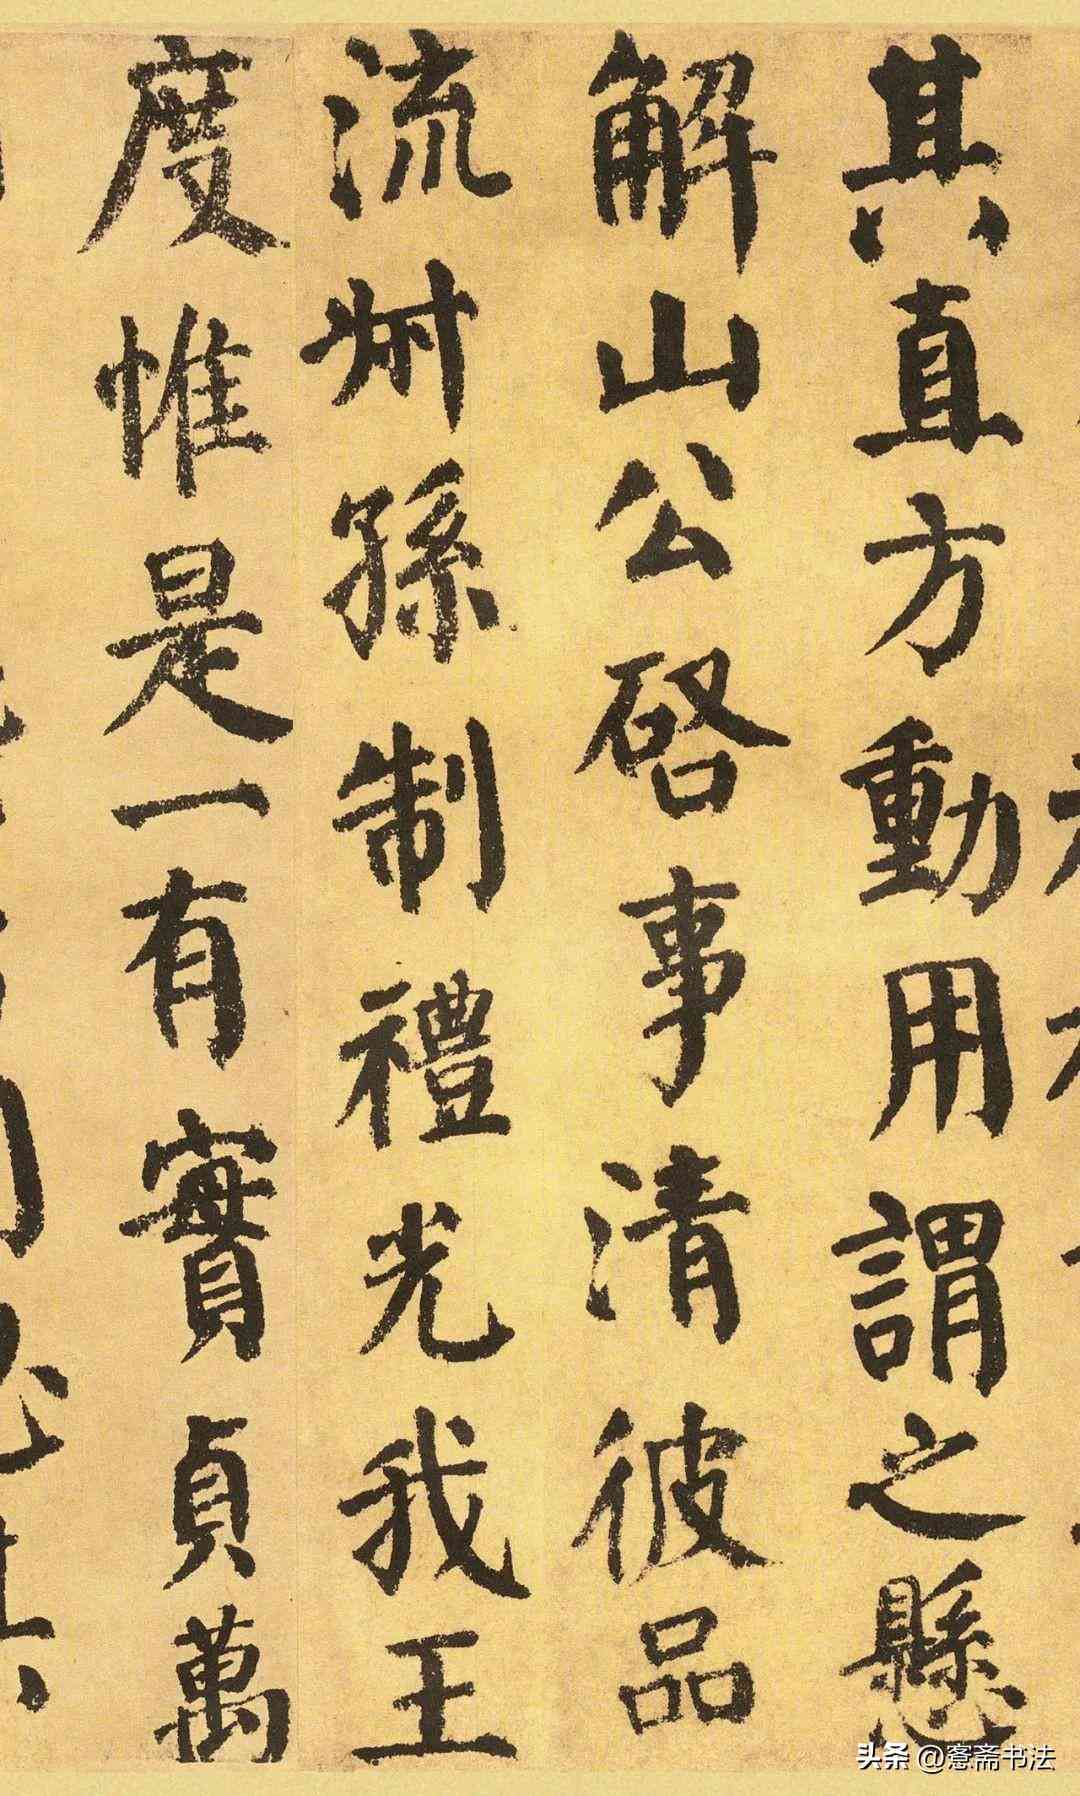 其直方動用謂之懸
解山公啓事清彼品
流叔孫制禮光我王
度惟是一有實貞萬
头条 @窓斋书法